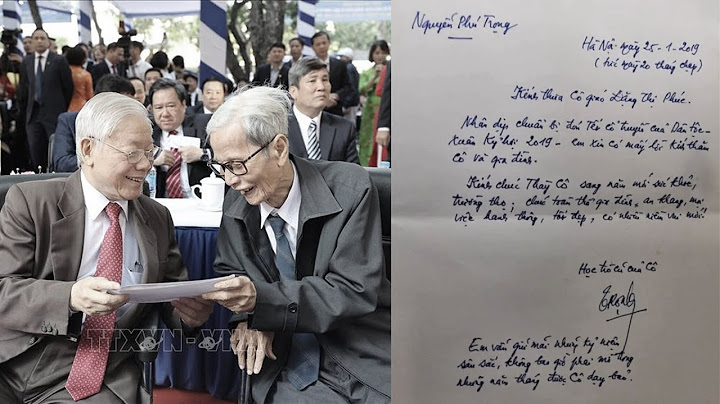 TTXVN - VNA
Nguyễn Phú Trọng
Hà Nội ngày 25-1-2019
(tức ngày 20 tháng chạp)
Kính thưa Cô giáo Đặng Thị Phúc.
Nhân dịp chuẩn bị đón Tết cổ truyền của Dân tộc -
Xuân Kỷ Hợi 2019 - em xin có mấy lời kính thăm
Cô và gia đình.
Kính chúc Thầy Cô sang năm mới sức khỏe,
trường thọ; chúc toàn thể gia đình an khang, mọi
việc hanh thông, tốt đẹp, có nhiều niềm vui mới.
Học trò cũ của Cô
Trọng
Em vẫn giữ mãi những kỷ niệm
sâu sắc, không bao giờ phai mờ trong
những năm tháng được Cô dạy bảo.